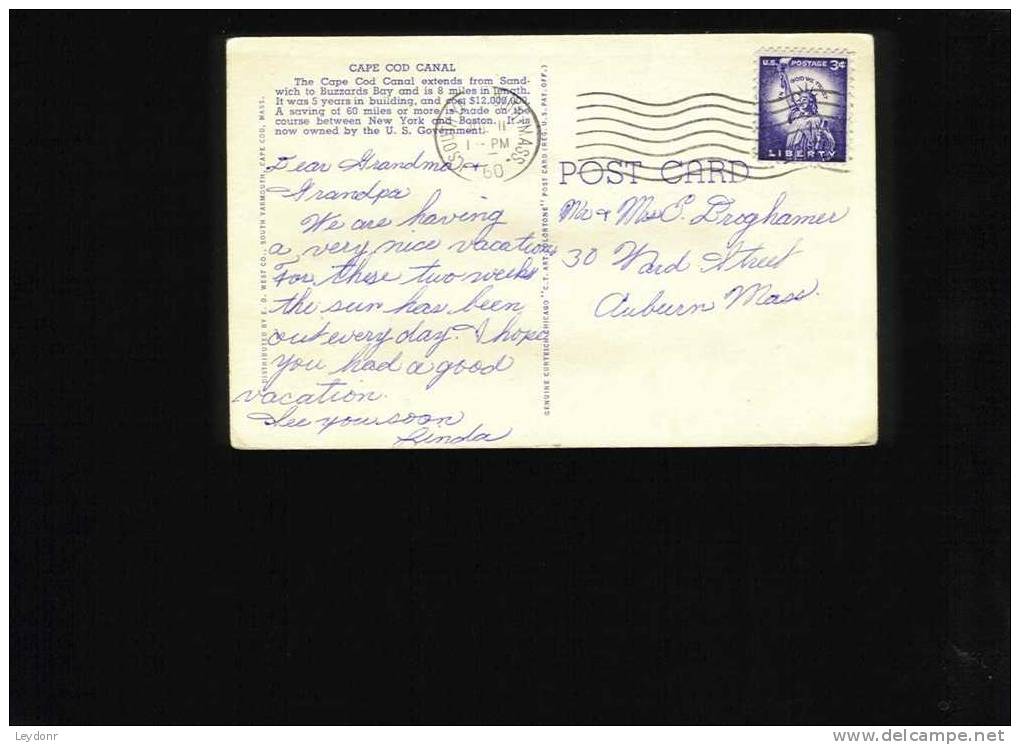 CAPE COD CANAL
The Cape Cod Canal extends from Sand-
wich to Buzzards Bay and is 8 miles in length.
It was 5 years in building, and cost $12,000,000.
A saving of 60 miles or more is made on the
course between New York and Boston. It is
now owned by the U. S. Government.
Dear Grandma &
Grandpa
We are having
a very nice vacation.
For these two weeks
the sun has been
out every day. I hope
you had a good
vacation.
See you soon
Linda
DISTRIBUTED BY E. D. WEST CO., SOUTH YARMOUTH, CAPE COD, MASS.
GENUINE CURTEICH-CHICAGO "C.T. ART-COLORTONE" POST CARD (REG. U.S. PAT. OFF.)
MASS.
11
1 - PM
60
U.S. POSTAGE 3¢
IN GOD WE TRUST
LIBERTY
POST CARD
Mr & Mrs E. Droghamer
30 Ward Street
Auburn Mass.
Leydonr
www.delcampe.net